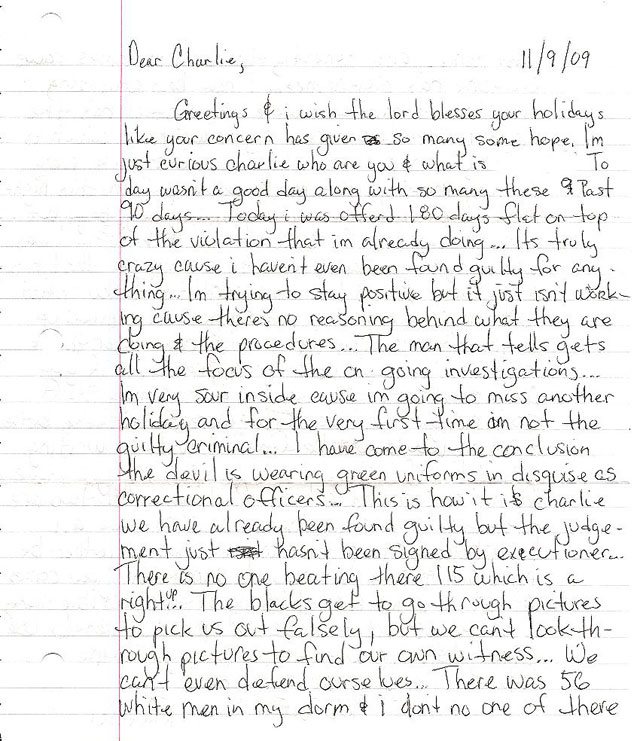 Dear Charlie,
11/9/09
Greetings & i wish the lord blesses your holidays
like your concern has given so many some hope. Im
just curious charlie who are you & what is To
day wasn't a good day along with so many these Past
90 days... Today i was offerd 180 days flat on-top
of the violation that im already doing... Its truly
crazy cause i haven't even been found guilty for any-
thing... Im trying to stay positive but it just isn't work-
ing cause there's no reasoning behind what they are
doing & the procedures... The man that tells gets
all the focus of the on going investigations...
Im very sour inside cause im going to miss another
holiday and for the very first time im not the
guilty criminal... I have come to the conclusion
the devil is wearing green uniforms in disguise as
correctional officers... This is how it is charlie
we have already been found guilty but the judge-
ment just hasn't been signed by executioner...
There is no one beating there 115 which is a
right up... The blacks get to go through pictures
to pick us out falsely, but we cant look th-
rough pictures to find our own witness... We
can't even defend ourselves... There was 56
white men in my dorm & i dont no one of there